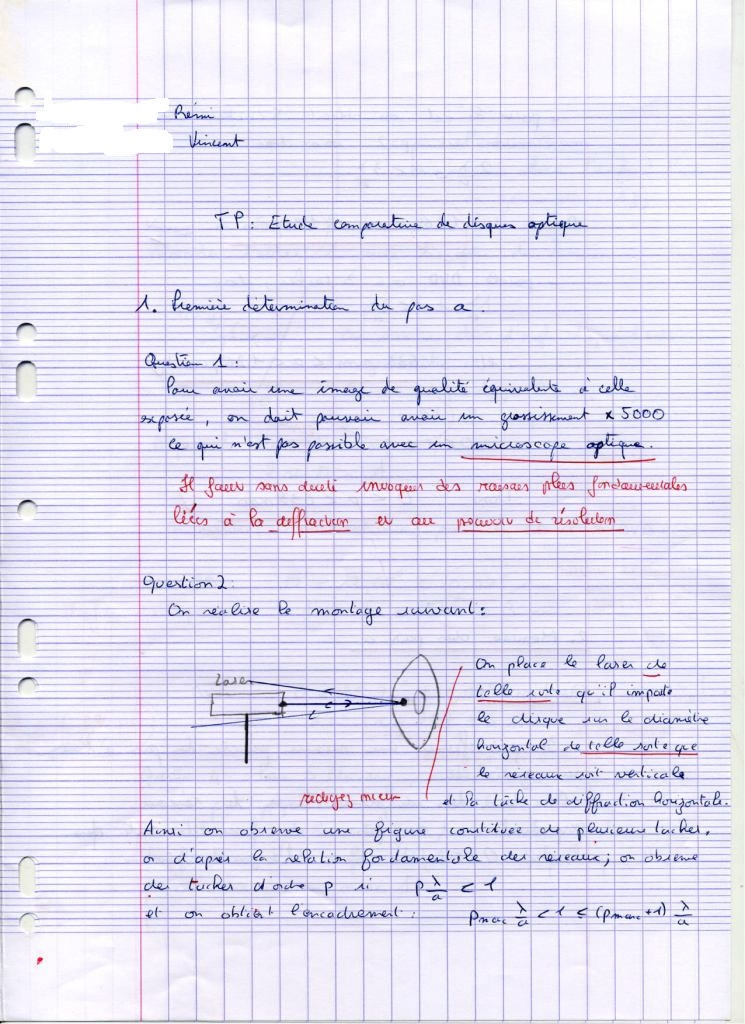 Rémi
Vincent
TP: Etude comparative de disques optique
1. Première détermination du pas a.
Question 1:
Pour avoir une image de qualité équivalente à celle
exposée, on doit pouvoir avoir un grossissement x 5000
ce qui n'est pas possible avec un microscope optique.
Il faut sans doute invoquer des raisons plus fondamentales
liées à la diffraction et au pouvoir de résolution
Question 2:
On réalise le montage suivant:
Laser
On place le laser de
telle sorte qu'il impacte
le disque sur le diamètre
horizontal de telle sorte que
le réseaux soit verticale
et la tâche de diffraction horizontale.
rédigez mieux
Ainsi on observe une figure constituée de plusieurs taches,
or d'après la relation fondamentale des réseaux; on observe
des taches d'ordre p si p λ/a < 1
et on obtient l'encadrement: pmax λ/a < 1 ≤ (pmax+1) λ/a